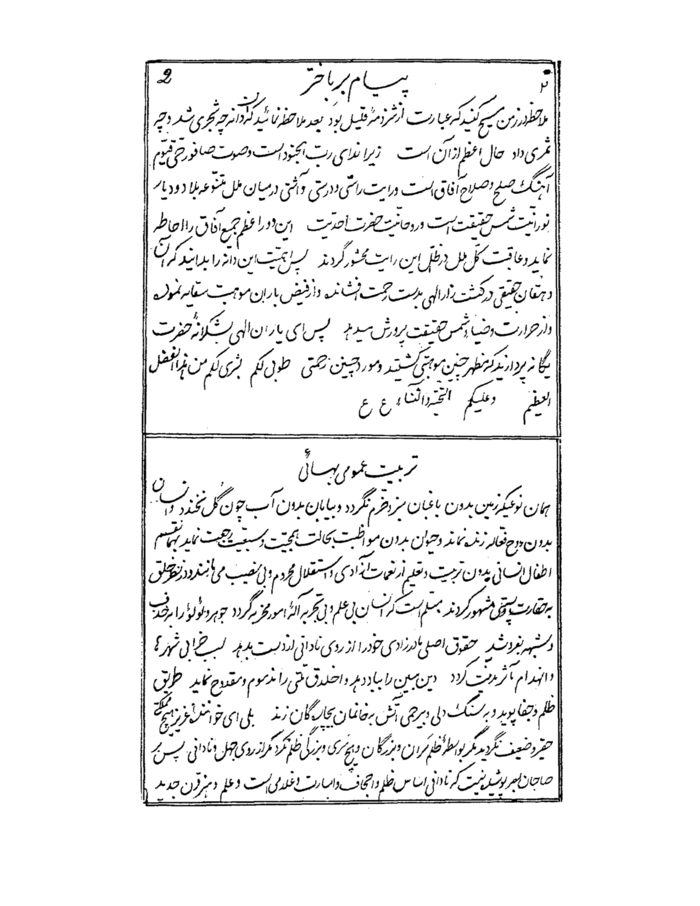 ۲ پیام بر باختر 2
ملاحظه در زمن مسیح کنید که عبارت از شرذمهٔ قلیل بود بعد ملاحظه نمائید که آن دانه چه شجری شد و چه
ثمری داد حال اعظم از آن است زیرا ندای رب الجنود است و صوت صافور حی قیوم
آهنگ صلح و صلاح آفاق است و رایت راستی و درستی و آشتی در میان ملل متنوعه بلاد و دیار
نورانیت شمس حقیقت است و روحانیت حضرت احدیت این دور اعظم جمیع آفاق را احاطه
نماید و عاقبت کل ملل در ظل این رایت محشور گردند پس اهمیت این دانه را بدانید که آن
دهقان حقیقی در کشت زار الهی بدست رحمت افشانده و از فیض باران موهبت سقایه نموده
و از حرارت و ضیاء شمس حقیقت پرورش میدهد پس ای یاران الهی بشکرانهٔ حضرت
یگانه پردازید که مظهر چنین موهبتی گشتید و مورد چنین رحمتی طوبی لکم بشری لکم من هذا الفضل
العظیم وعلیکم التحیة والثناء ع ع
تربیت عمومی بهائی
همان نوعیکه زمین بدون باغبان سبز و خرم نگردد و بیابان بدون آب چون گل نخندد و انسان
بدون روح فعاله زنده نماند و حیوان بدون مواظبت بحالت بهیمیت و سبعیت رجعت نماید بهمانقسم
اطفال انسانی بدون تربیت و تعلیم از نعمات آزادی و استقلال محروم و بی نصیب می مانند و در نزد خلق
به حقارت و پستی مشهور گردند مسلم است که انسان بی علم و بی تجربه آلهٔ امور مخربه گردد جوهر و لؤلؤ را به خذف
و شبه بفروشد حقوق اصلی مادرزادی خود را از روی نادانی از دست بدهد سبب خرابی شهرها
و انهدام مآثر مدنیت گردد دین مبین را بباد دهد و اخلاق ملتی را مذموم و مقدوح نماید طریق
ظلم و جفا پوید و به سنگ دلی و بیرحمی آتش به خانمان بیچارگان زند بلی ای خوانندهٔ عزیز هیچ مملکتی
حقیر و ضعیف نگردید مگر بواسطهٔ ظلم سران و بزرگان و هیچ سری و بزرگی ظلم نکرد مگر از روی جهل و نادانی پس بر
صاحبان بصر پوشیده نیست که نادانی اساس ظلم و اجحاف و اسارت و غلامی است و علم و هنر قرن جدید